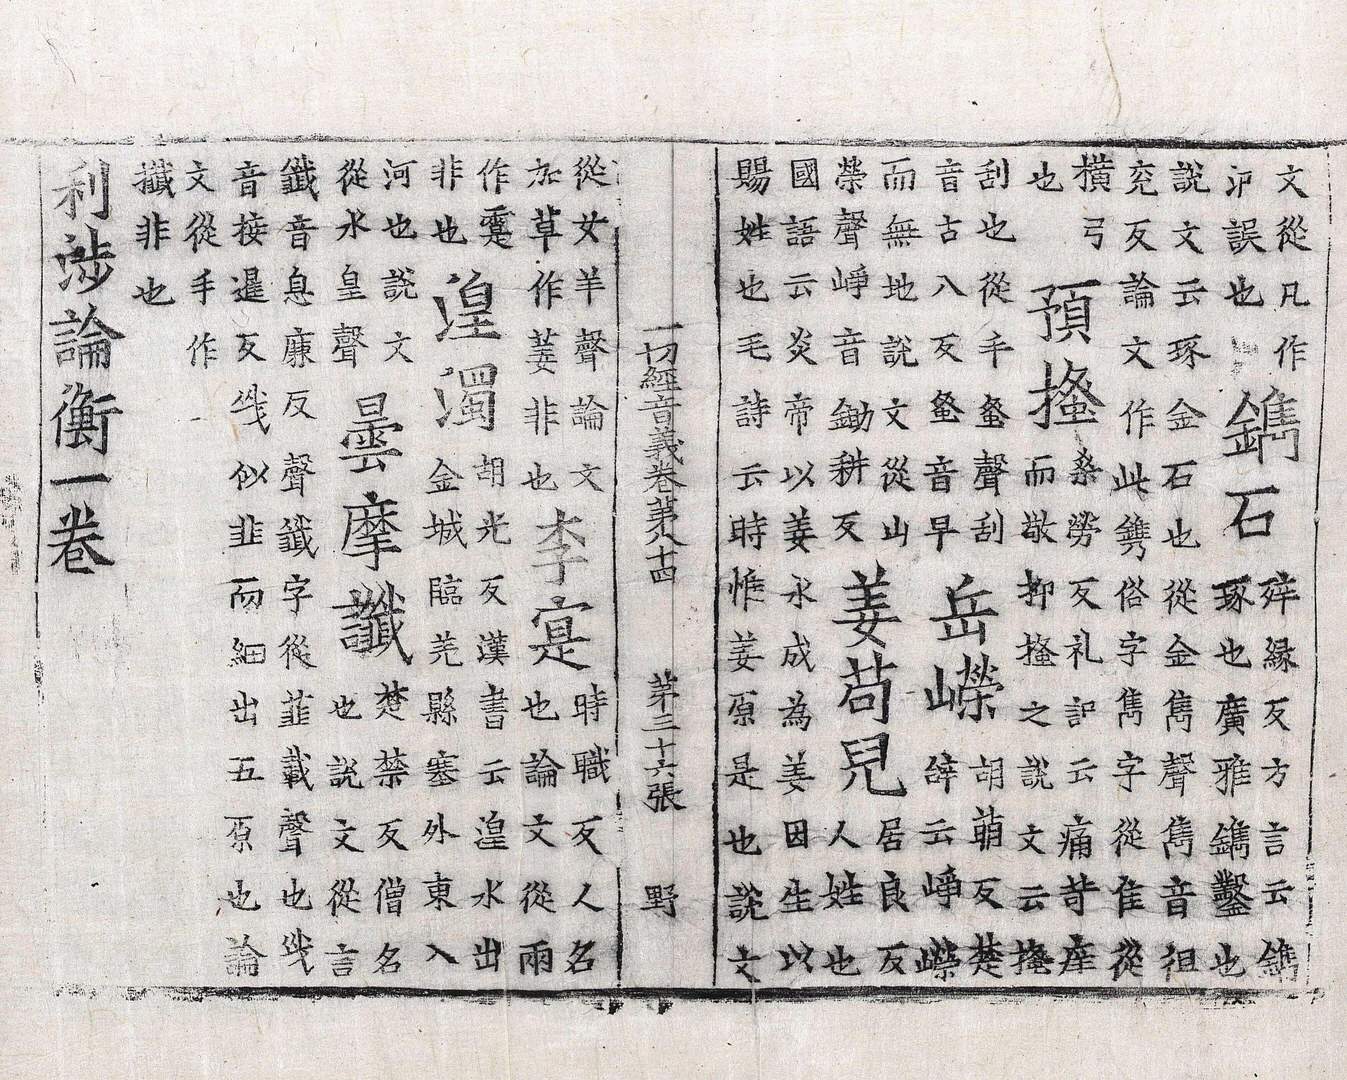 文從凡作
泸誤也
鐫石
殚緣反方言云鐫
琢也廣雅鐫鑿也
說文云琢金石也從金雋聲雋音徂
兖反論文作此鐫俗字雋字從隹從
横弓
預搔
桑勞反礼記云痛苛癢
也
而敬抑搔之說文云搔
刮也從手蚤聲刮
音古八反蚤音早
岳嶸
胡萌反楚
辞云崢嶸
而無地說文從山
榮聲崢音鋤耕反
姜苟兒
居良反
人姓也
國語云炎帝以姜水成為姜因生以
賜姓也毛詩云時惟姜原是也說文
一切經音義卷苐八十四 苐三十六張 野
從女羊聲論文
加草作䒨非也
李寔
時職反人名
也論文從雨
作𩃱
非也
湟濁
胡光反漢書云湟水出
金城臨羌縣塞外東入
河也說文
從水皇聲
曇摩讖
楚禁反僧名
也說文從言
韱音息廉反聲韱字從韮㦰聲也㦰
音接暹反㦰似韭而細出五原也論
文從手作
攕非也
利涉論衡一卷